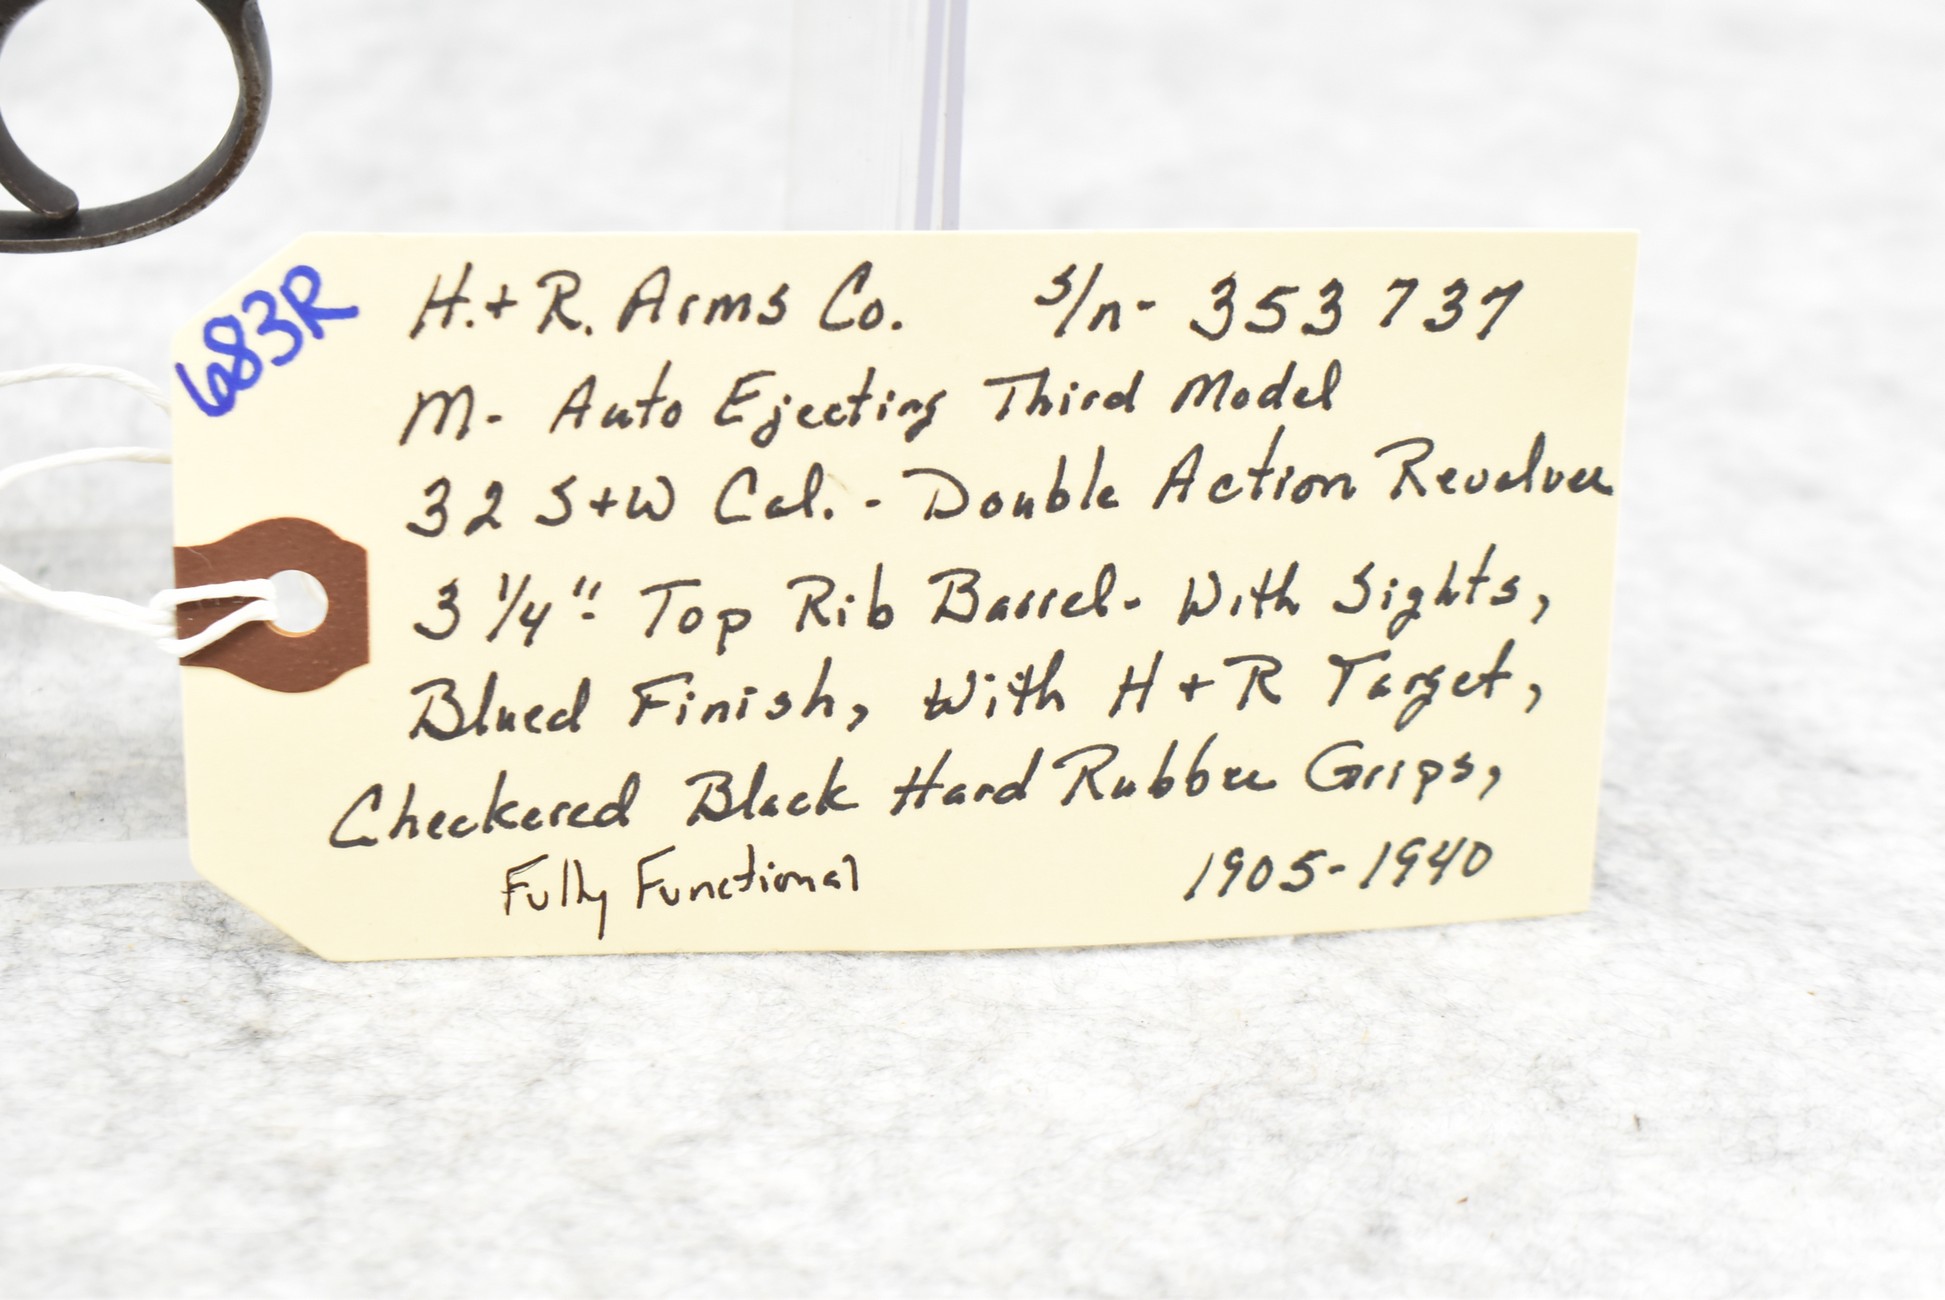 683R
H.+R. Arms Co. s/n- 353737
M- Auto Ejecting Third Model
32 S+W Cal. - Double Action Revolver
3 1/4" Top Rib Barrel- With Sights,
Blued Finish, With H+R Target,
Checkered Black Hard Rubber Grips,
Fully Functional 1905-1940